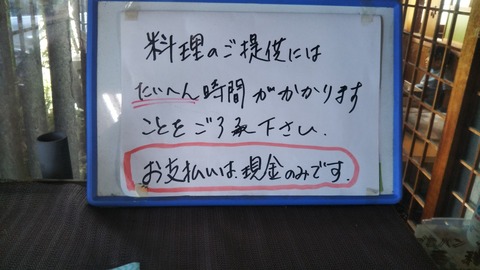 料理のご提供には
たいへん時間がかかります
ことをご了承下さい.
お支払いは現金のみです.